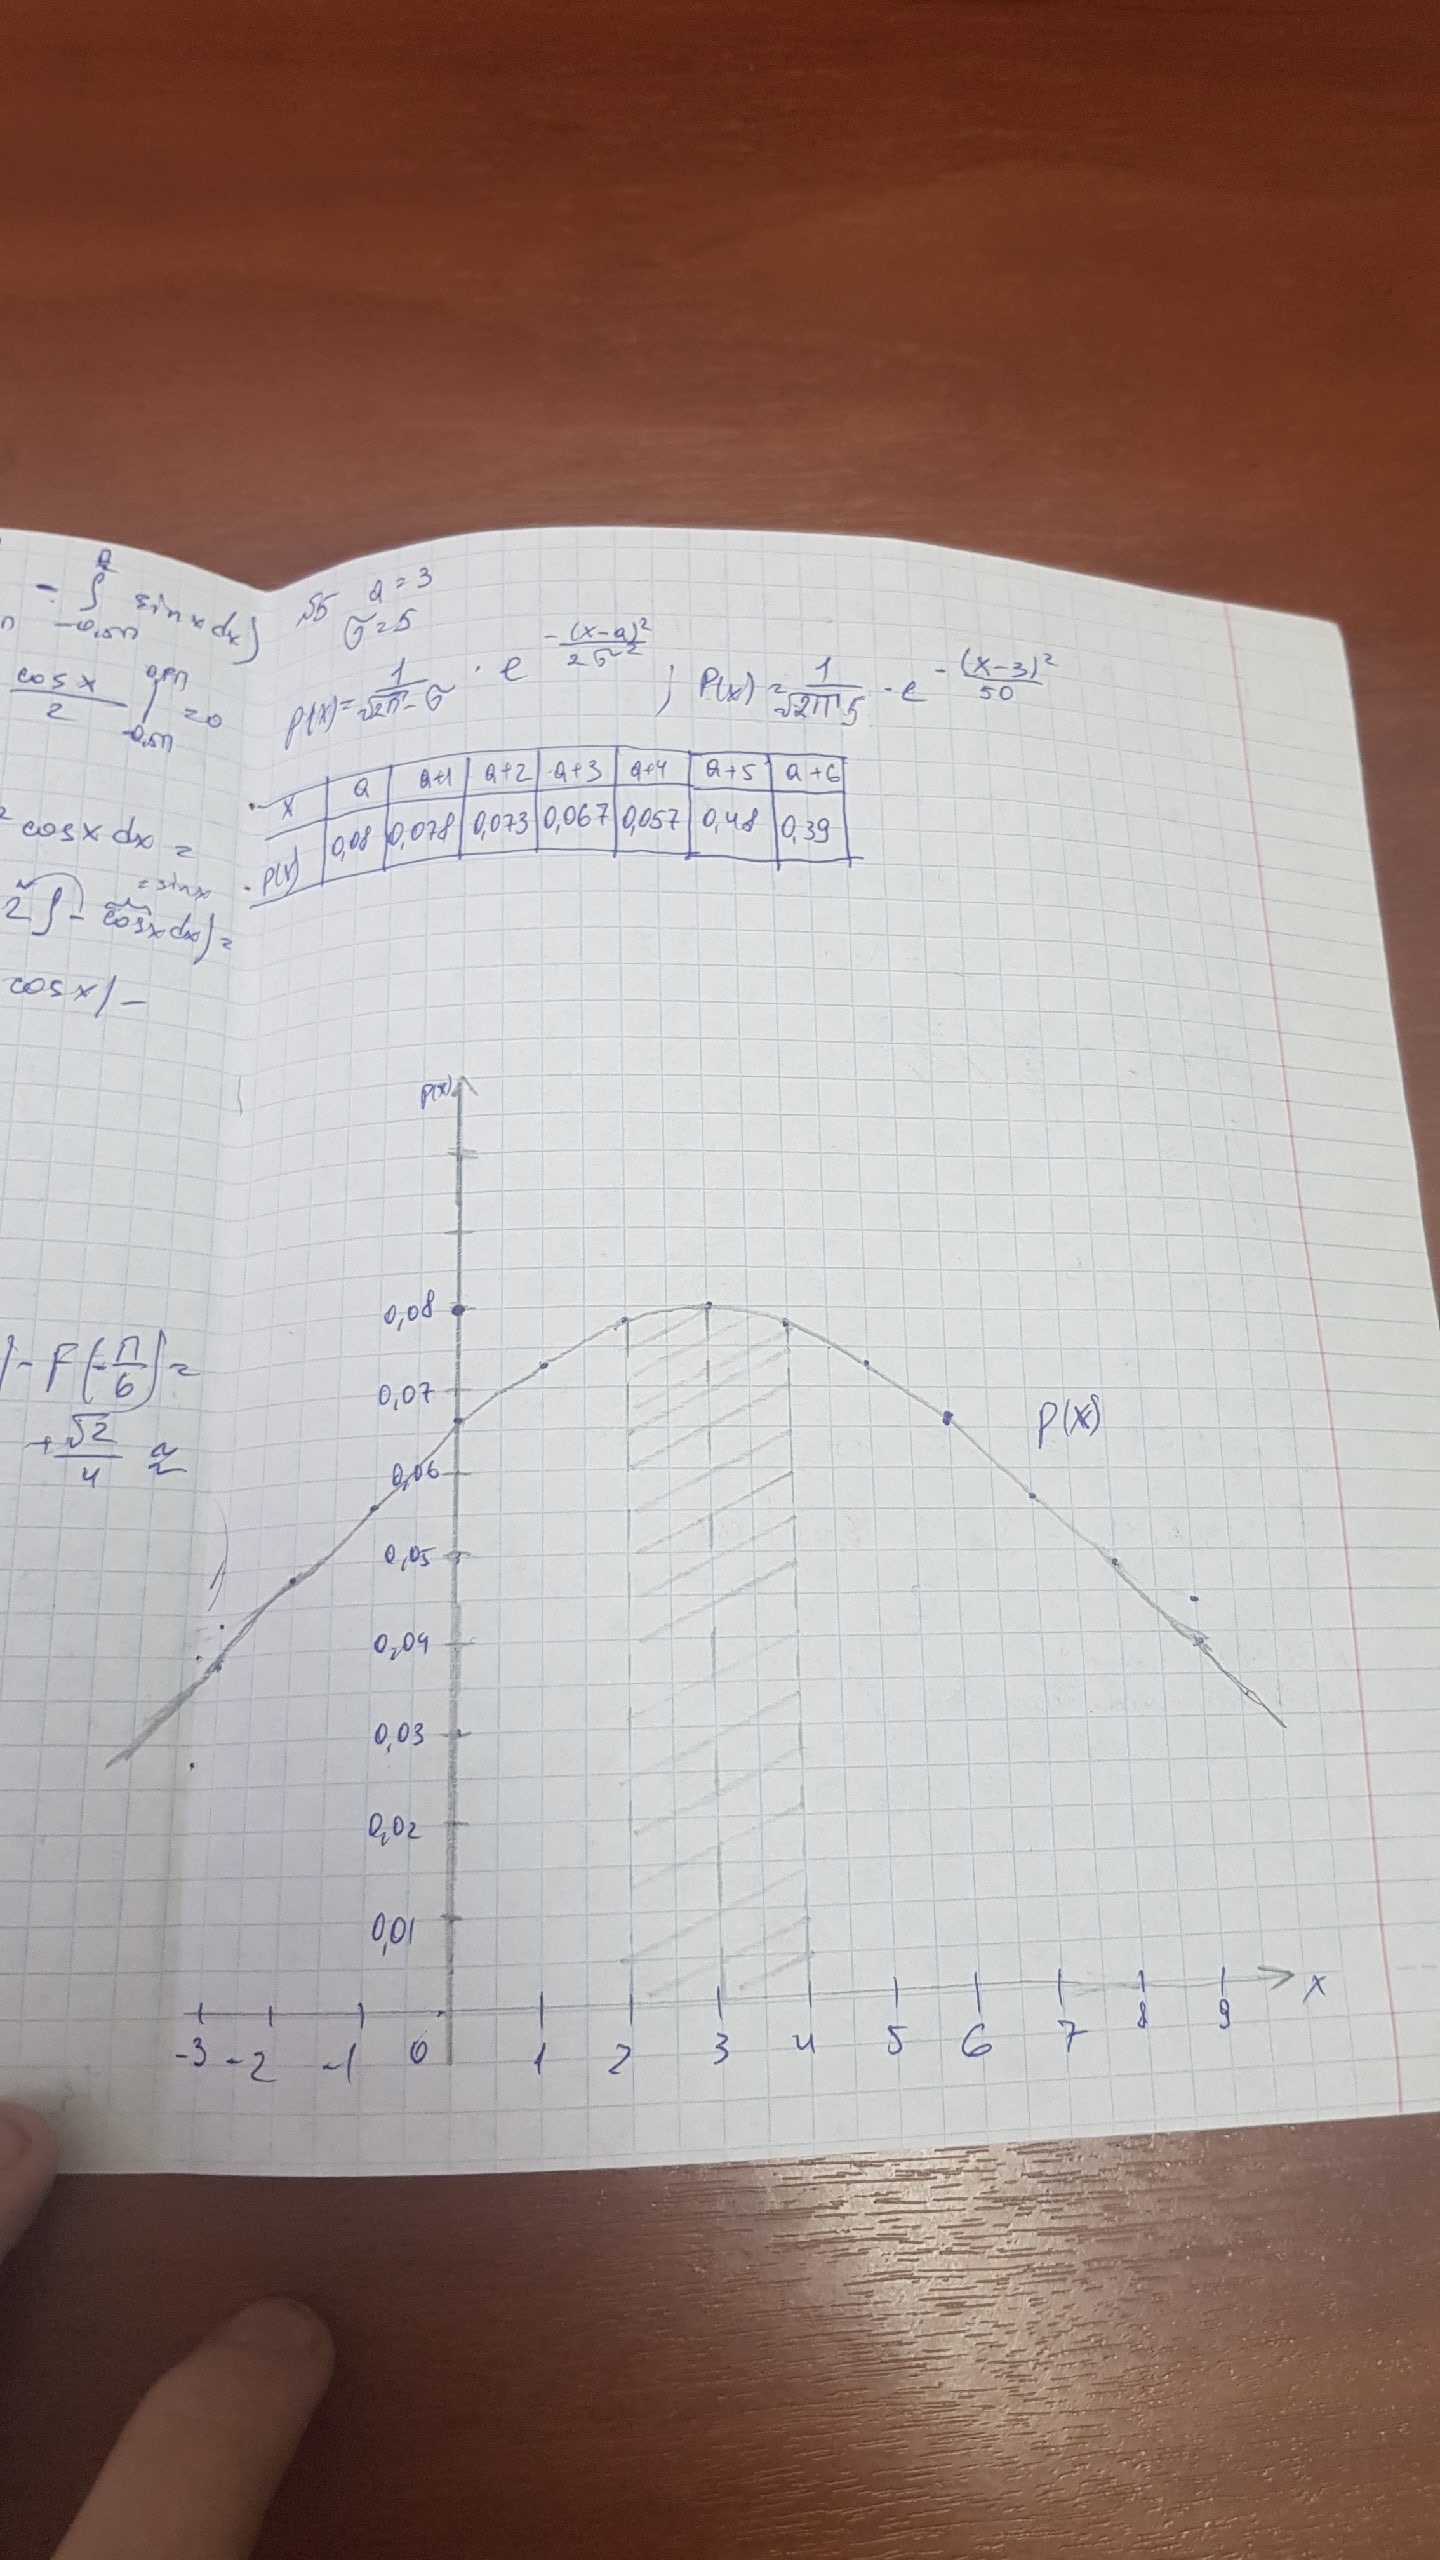 - ∫ sinx dx)
-0,5π
cosx/2 | 0,5π -0,5π = 0
cosx dx =
= sinx
2∫ - cosx dx) =
cosx/ -
) - F(-π/6) =
+ √2/4 ≈
№5 a = 3
σ = 5
p(x) = 1/√2π · σ · e^-(x-a)²/2σ² ; P(x) = 1/√2π 5 · e^-(x-3)²/50
x a a+1 a+2 a+3 a+4 a+5 a+6
p(x) 0,08 0,078 0,073 0,067 0,057 0,48 0,39
p(x)
0,08
0,07
P(x)
0,06
0,05
0,04
0,03
0,02
0,01
-3 -2 -1 0 1 2 3 4 5 6 7 8 9 x